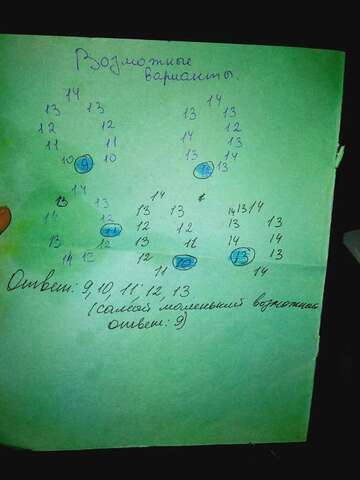 Возможные
варианты.
14 14
13 13 13 13
12 12 14 12
11 11 13 13
10 9 10 14 13
14 14 14
13 13 13 13 13 13
11 12 12 13
13 12 13 11 14 14
12 10 13 13
11 14
Ответ: 9, 10, 11, 12, 13
(самый маленький возможный
ответ: 9)